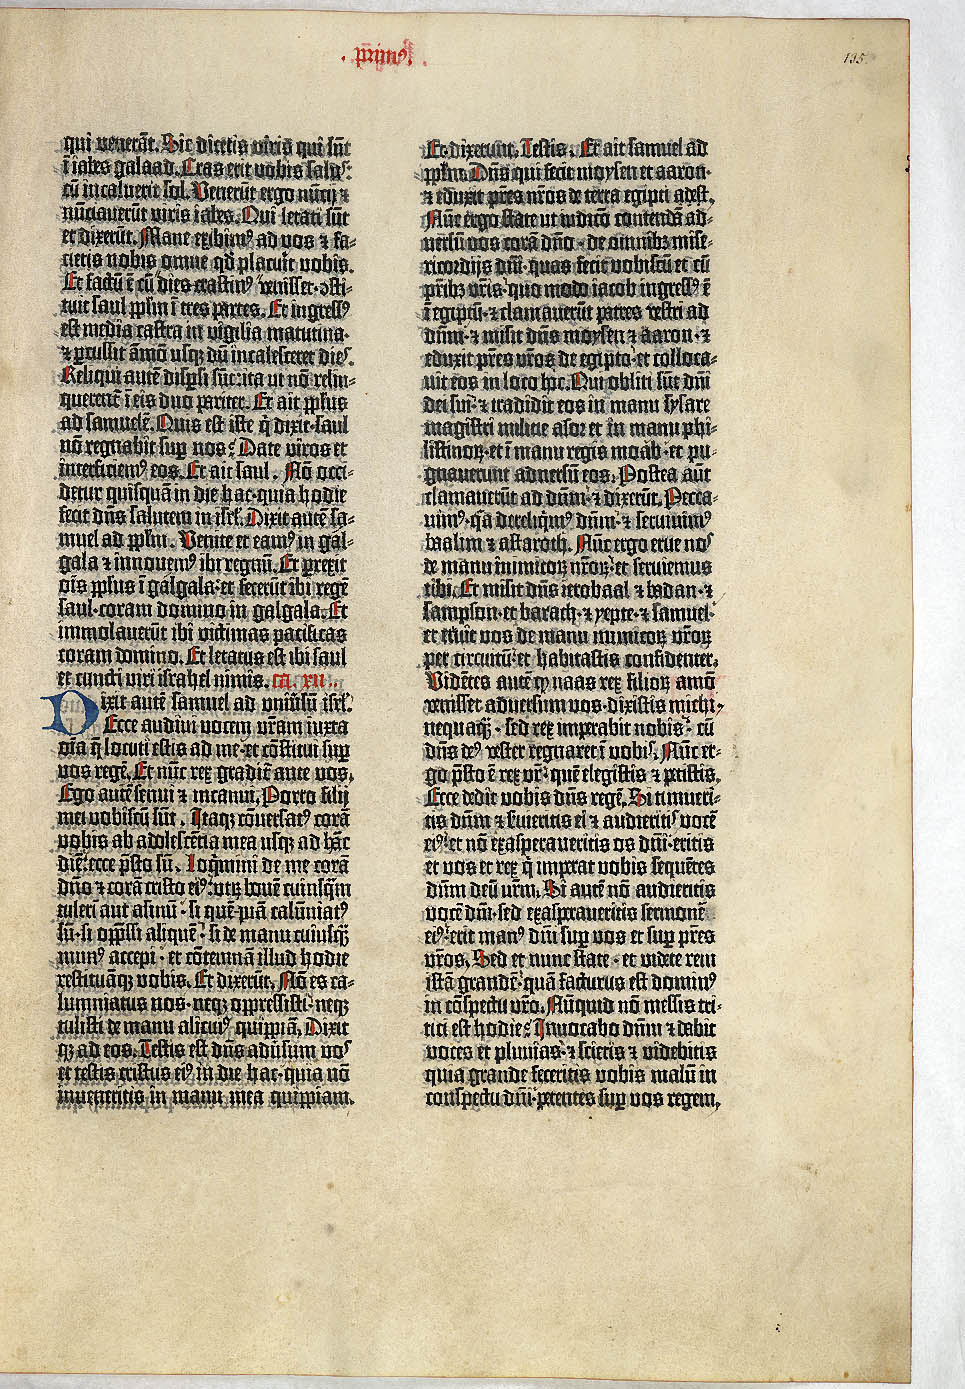 ·prim⁹·
135
qui venerãt. Sic dicetis viris qui sũt
ĩ iabes galaad. Cras erit vobis salꝰ:
cũ incaluerit sol. Venerũt ergo nũcij ⁊
nũciaverũt viris iabes. Qui letati sũt
et dixerũt. Mane exibimꝰ ad vos ⁊ fa-
cietis nobis omne qđ placuit vobis.
Et factũ ẽ cũ dies crastinꝰ venisset·ↄsti-
tuit saul pplm̃ ĩ tres partes. Et ingressꝰ
est media castra in vigilia matutina·
⁊ ꝑcussit amõ usqꝫ dũ incalesceret dies.
Reliqui autẽ disꝑsi sũt: ita ut nõ relin-
querent̃ ĩ eis duo pariter. Et ait pplus
ad samuelẽ. Quis est iste q̃ dixit·saul
nõ regnabit suꝑ nos? Date viros et
interficiemꝰ eos. Et ait saul. Nõ occi-
detur quisquã in die hac·quia hodie
fecit dñs salutem in isrł. Dixit autẽ sa-
muel ad pplm̃. Venite et eamꝰ in gal-
gala ⁊ innovemꝰ ibi regnũ. Et ꝑrexit
oĩs pplus ĩ galgala·et fecerũt ibi regẽ
saul·coram domino in galgala. Et
immolaverũt ibi victimas pacificas
coram domino. Et letatus est ibi saul
et cuncti viri israhel nimis. ca. xii.
Dixit autẽ samuel ad universũ isrł.
Ecce audivi vocem vr̃am iuxta
oĩa q̃ locuti estis ad me·et cõstitui suꝑ
vos regẽ. Et nũc rex gradit̃ ante vos.
Ego autẽ senui ⁊ incanui. Porro filij
mei vobiscũ sũt. Itaqꝫ cõversatꝰ corã
vobis ab adolescẽtia mea usqꝫ ad hãc
diẽ: ecce p̃sto sũ. Loq̃mini de me corã
dño ⁊ corã cristo eiꝰ: utrũ bovẽ cuiusq̃m
tulerĩ aut asinũ: si quẽ·piã calũniatꝰ
sũ·si opp̃ssi aliquẽ: si de manu cuiusq̃ꝫ
munꝰ accepi·et cõtemnã illud hodie
restituãqꝫ vobis. Et dixerũt. Nõ es ca-
lumniatus nos·neqꝫ oppressisti·neqꝫ
tulisti de manu alicuiꝰ quippiã. Dixit
qꝫ ad eos. Testis est dñs adũsum vos
et testis cristus eiꝰ in die hac·quia nõ
inveneritis in manu mea quippiam.
Et dixerunt. Testis. Et ait samuel ad
pplm̃. Dñs qui fecit moysen et aaron·
⁊ eduxit p̃res nr̃os de terra egipti adest.
Nũc ergo state ut iudicio contendã ad-
versũ vos corã dño·de omnibꝫ mise-
ricordijs dñi·quas fecit vobiscũ et cũ
p̃ribꝫ vr̃is·quo modo iacob ingressꝰ ẽ
ĩ egiptũ·⁊ clamaverũt patres vestri ad
dñm·⁊ misit dñs moysen ⁊ aaron·⁊
eduxit p̃res vr̃os de egipto·et colloca-
vit eos in loco hoc. Qui obliti sũt dñi
dei sui·⁊ tradidit eos in manu sysare
magistri milicie asor et in manu phi-
listinoꝝ·et ĩ manu regis moab·et pu-
gnaverunt adversũ eos. Postea aũt
clamaverũt ad dñm·⁊ dixerũt. Pecca-
vimꝰ·q̃a dereliq̃mꝰ dñm·⁊ servivimꝰ
baalim ⁊ astaroth. Nũc ergo erue nos
de manu inimicoꝝ nr̃oꝝ: et serviemus
tibi. Et misit dñs ierobaal ⁊ badan·⁊
sampson·et barach·⁊ yepte·⁊ samuel·
et eruit vos de manu inimicoꝝ vr̃oꝝ
per circuitũ·et habitastis confidenter.
Vidẽtes autẽ ꝙ naas rex filioꝝ amõ
venisset adversum vos·dixistis michi·
nequaq̃ꝫ·sed rex imperabit nobis: cũ
dñs deꝰ vester regnaret ĩ vobis. Nũc er-
go p̃sto ẽ rex vr̃: quẽ elegistis ⁊ petistis.
Ecce dedit vobis dñs regẽ. Si timueri-
tis dñm ⁊ s̃vieritis ei ⁊ audieritis vocẽ
eiꝰ: et nõ exasperaveritis os dñi·eritis
et vos et rex q̃ imperat vobis sequẽtes
dñm deũ vr̃m. Si autẽ nõ audieritis
vocẽ dñi·sed exasperaveritis sermonẽ
eiꝰ: erit manꝰ dñi suꝑ vos et suꝑ p̃res
vr̃os. Sed et nunc state·et videte rem
istã grandẽ·quã facturus est dominꝰ
in cõspectu vr̃o. Nũquid nõ messis tri-
tici est hodie? Invocabo dñm ⁊ dabit
voces et pluvias·⁊ scietis ⁊ videbitis
quia grande feceritis vobis malũ in
conspectu dñi·petentes suꝑ vos regem.